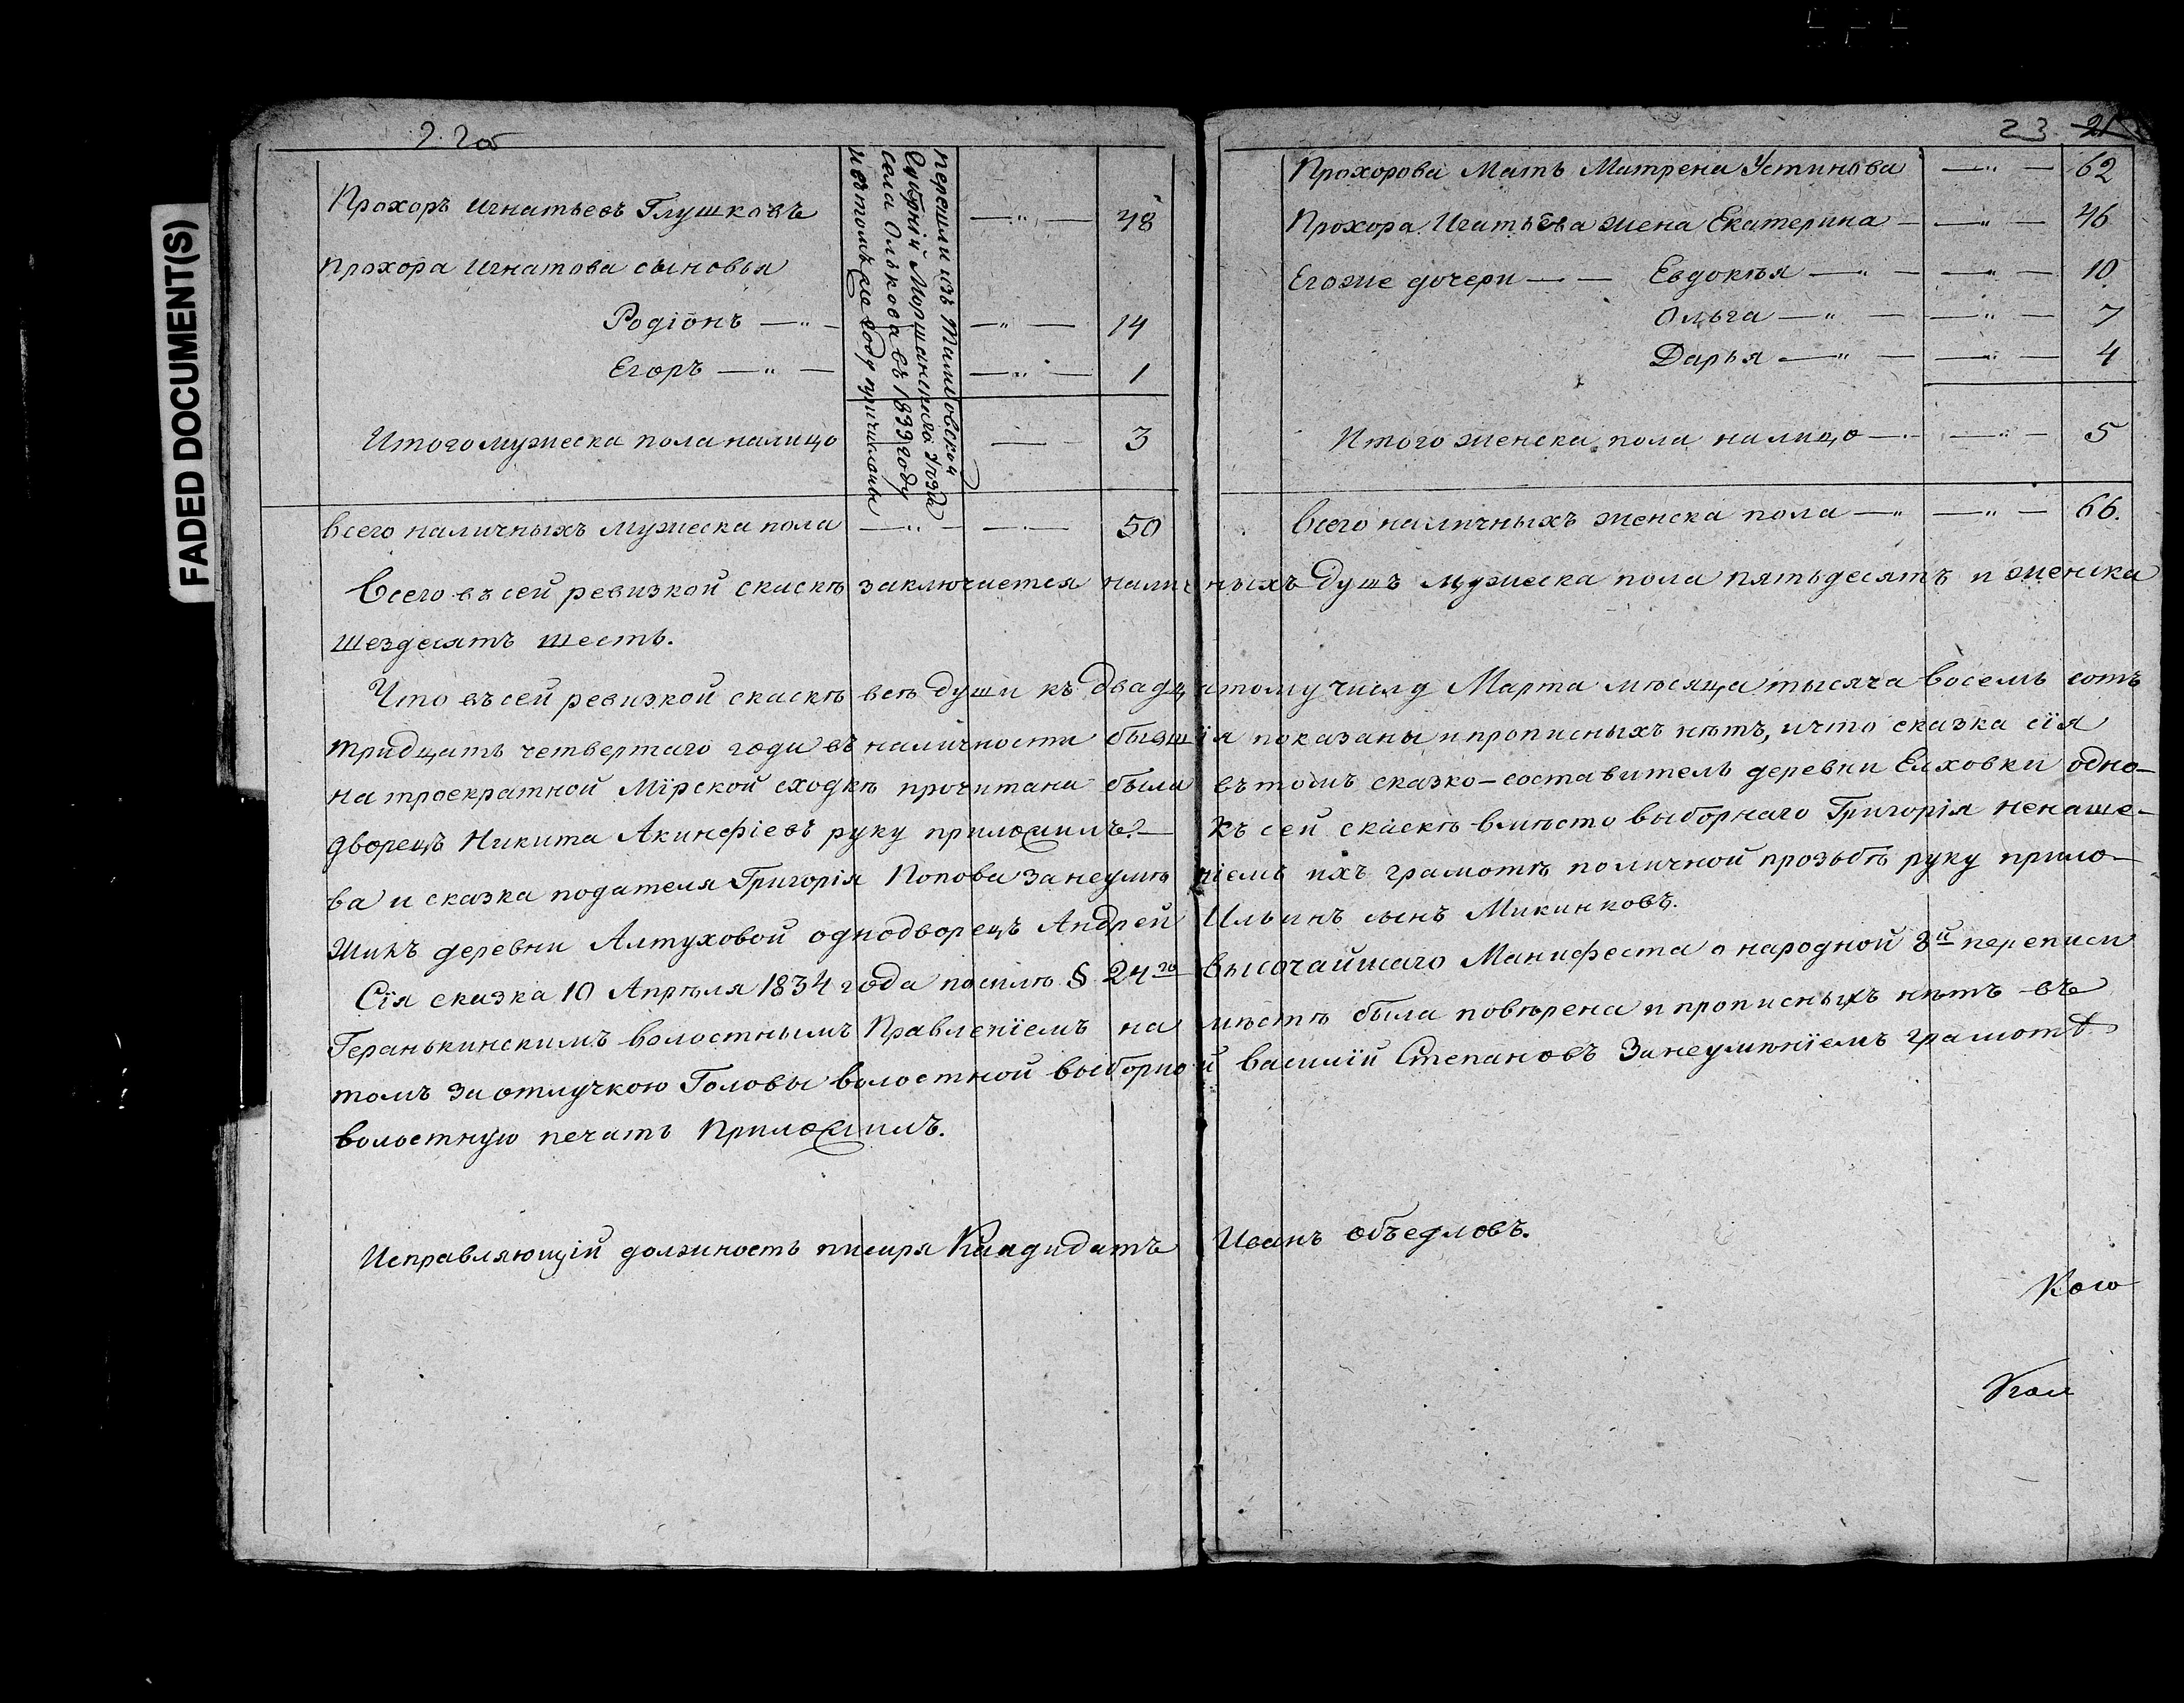 FADED DOCUMENT(S)
22об
Прохоръ Игнатьевъ Глушковъ 48
Прохора Игнатова сыновья
Родіонъ 14
Егоръ 1
Итого мужеска пола налицо 3
всего наличныхъ мужеска пола 50
перешли изъ Тамбовской
Губерній Моршанскаго Уѣзда
села Олькова въ 1833 году
и вътомъ же году причислены
23 21
Прохорова Мать Матрена Устинова 62
Прохора Игатьева жена Екатерина 46
Егоже дочери Евдокѣя 10
Ольга 7
Дарья 4
Итого женска пола налицо 5
Всего наличныхъ женска пола 66.
Всего въ сей ревизкой скаскѣ заключается наличныхъ душъ мужеска пола пятьдесятъ и женска
шездесятъ шесть.
Что въ сей ревизкой скаскѣ всѣ души къ двадцатому числу Марта мѣсяца тысяча восемь сотъ
тридцать четвертаго года въ наличности бывшія показаны и прописныхъ нѣтъ, и что сказка сія
на троекратной Мірской сходкѣ прочитана была въ томъ сказко-составитель деревни Елховки одно-
дворецъ Никита Акинфіевъ руку приложилъ.— Къ сей скаскѣ вмѣсто выборнаго Григорія Ненаше-
ва и сказка подателя Григорія Попова за неумѣніемъ ихъ грамотѣ поличной прозьбѣ руку прило-
жилъ деревни Алтуховой однодворецъ Андрей Ильинъ сынъ Микинковъ.
Сія сказка 10 Апрѣля 1834 года по силѣ § 24го Высочайшаго Манифеста о народной 8й переписи
Геранькинскимъ волостнымъ Правленіемъ на мѣстѣ была повѣрена и прописныхъ нѣтъ въ
томъ за отлучкою Головы волостной выборной Василій Степановъ за неумѣніемъ грамотѣ
волостную печать Приложилъ.
Исправляющій должность писаря Кандидатъ Иванъ Объедловъ.